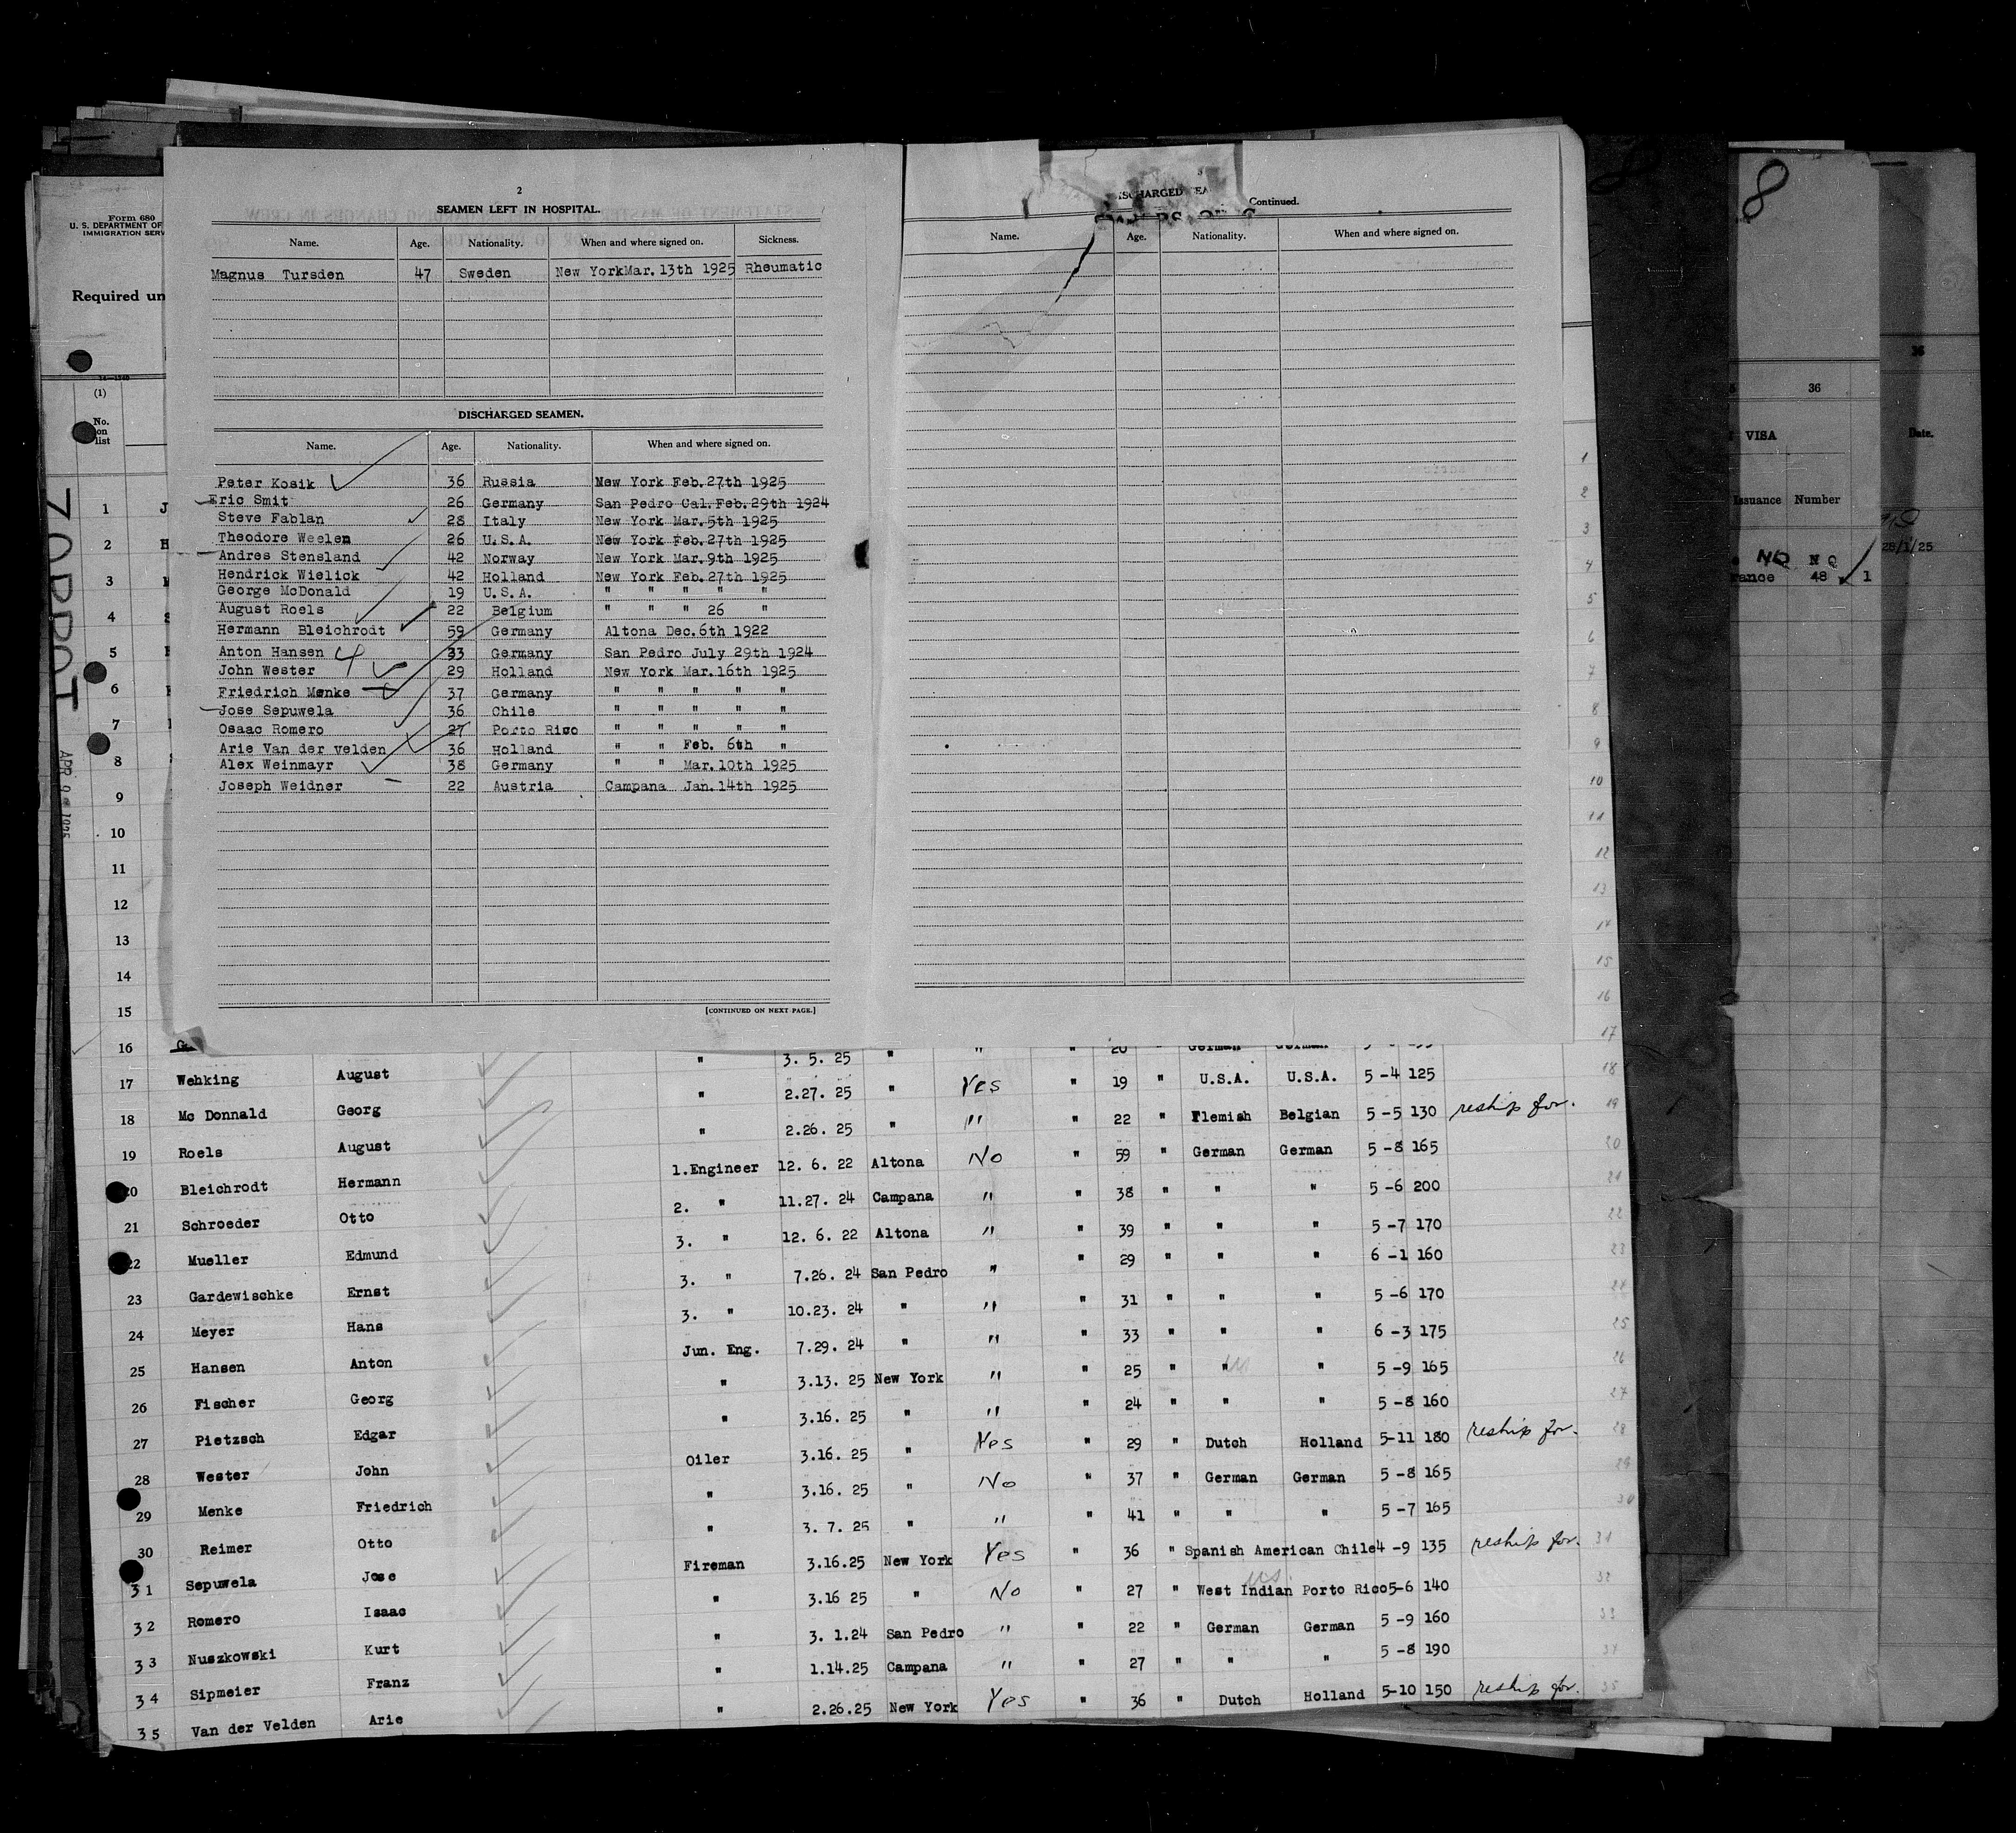 Form 680
U. S. DEPARTMENT OF
IMMIGRATION SERV
Required un
(1)
No.
on
list
2
SEAMEN LEFT IN HOSPITAL.
Name. Age. Nationality. When and where signed on. Sickness.
Magnus Tursden 47 Sweden New York Mar. 13th 1925 Rheumatic
DISCHARGED SEAMEN.
Name. Age. Nationality. When and where signed on.
Peter Kosik 36 Russia New York Feb. 27th 1925
Eric Smit 26 Germany San Pedro Cal. Feb. 29th 1924
Steve Fablan 28 Italy New York Mar. 5th 1925
Theodore Weelen 26 U.S.A. New York Feb. 27th 1925
Andres Stensland 42 Norway New York Mar. 9th 1925
Hendrick Wielick 42 Holland New York Feb. 27th 1925
George McDonald 19 U.S.A. " " " " "
August Roels 22 Belgium " " " 26 "
Hermann Bleichrodt 59 Germany Altona Dec. 6th 1922
Anton Hansen 33 Germany San Pedro July 29th 1924
John Wester 29 Holland New York Mar. 16th 1925
Friedrich Menke 37 Germany " " " " "
Jose Sepuwela 36 Chile " " " " "
Osaac Romero 27 Porto Rico " " " " "
Arie Van der velden 36 Holland " " Feb. 6th "
Alex Weinmayr 38 Germany " " Mar. 10th 1925
Joseph Weidner 22 Austria Campana Jan. 14th 1925
[CONTINUED ON NEXT PAGE.]
Continued.
Name. Age. Nationality. When and where signed on.
8
36
VISA
Issuance Number
Date.
NQ N Q
rance 48 1
28/1/25
1
2
3
4
5
6
7
8
9
10
11
12
13
14
15
16 3. 5. 25 " " " 20 " German German
17 Wehking August " 2.27. 25 " Yes " 19 " U.S.A. U.S.A. 5-4 125
18 Mc Donnald Georg " 2.26. 25 " " " 22 " Flemish Belgian 5-5 130 reship for.
19 Roels August 1.Engineer 12. 6. 22 Altona No " 59 " German German 5-8 165
20 Bleichrodt Hermann 2. " 11.27. 24 Campana " " 38 " " " 5-6 200
21 Schroeder Otto 3. " 12. 6. 22 Altona " " 39 " " " 5-7 170
22 Mueller Edmund 3. " 7.26. 24 San Pedro " " 29 " " " 6-1 160
23 Gardewischke Ernst 3. " 10.23. 24 " " " 31 " " " 5-6 170
24 Meyer Hans Jun. Eng. 7.29. 24 " " " 33 " " " 6-3 175
25 Hansen Anton " 3.13. 25 New York " " 25 " " " 5-9 165
26 Fischer Georg " 3.16. 25 " " " 24 " " " 5-8 160
27 Pietzsch Edgar Oiler 3.16. 25 " Yes " 29 " Dutch Holland 5-11 180 reship for.
28 Wester John " 3.16. 25 " No " 37 " German German 5-8 165
29 Menke Friedrich " 3. 7. 25 " " " 41 " " " 5-7 165
30 Reimer Otto Fireman 3.16.25 New York Yes " 36 " Spanish American Chile 4-9 135 reship for.
31 Sepuwela Jose " 3.16 25 " No " 27 " West Indian Porto Rico 5-6 140
32 Romero Isaac " 3. 1.24 San Pedro " " 22 " German German 5-9 160
33 Nuszkowski Kurt " 1.14.25 Campana " " 27 " " " 5-8 190
34 Sipmeier Franz " 2.26.25 New York Yes " 36 " Dutch Holland 5-10 150 reship for.
35 Van der Velden Arie